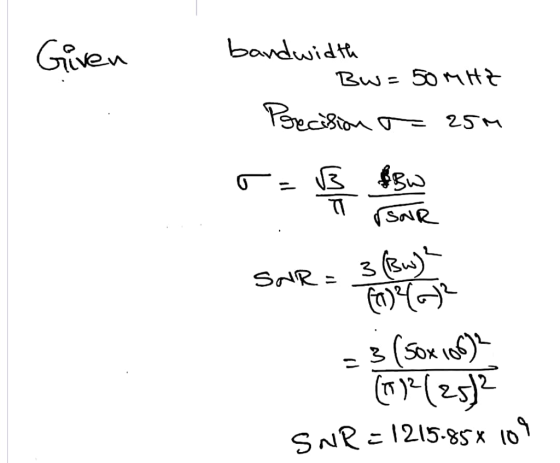 Given bandwidth
BW = 50 MHZ
Precision σ = 25M
σ = √3/π BW/√SNR
SNR = 3(BW)²/(π)²(σ)²
= 3(50x10⁶)²/(π)²(25)²
SNR = 1215.85 x 10⁹